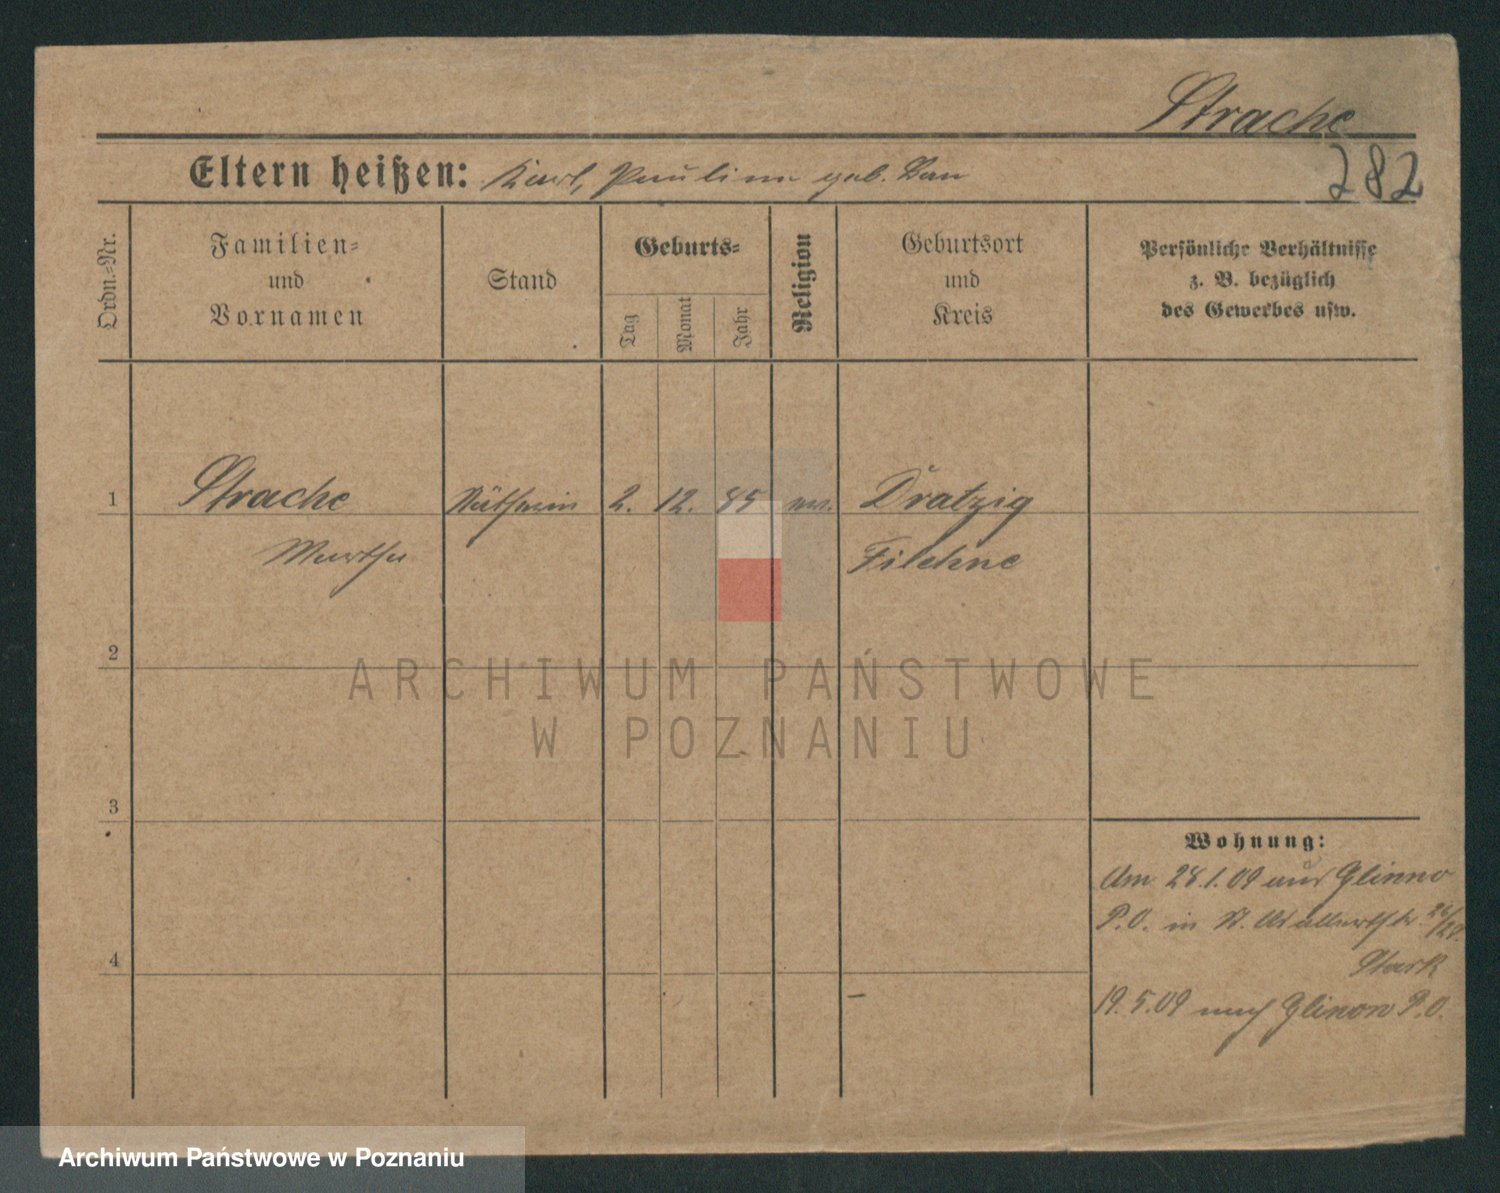 Strache
Eltern heißen: Karl, Pauline geb. Dau
282
Ordn.-Nr.
Familien-
und
Vornamen
Stand
Geburts-
Tag
Monat
Jahr
Religion
Geburtsort
und
Kreis
Persönliche Verhältnisse
z. B. bezüglich
des Gewerbes usw.
1 Strache Näherin 2. 12. 85 ev. Dratzig
Martha Filehne
2
3
4
ARCHIWUM PAŃSTWOWE
W POZNANIU
Wohnung:
Am 28.1.09 aus Glinno
P.O. in St. 26/28.
Stark
19.5.09 nach Glinon P.O.
Archiwum Państwowe w Poznaniu